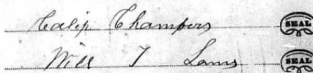 Calip Chambers SEAL
Will T Lams SEAL